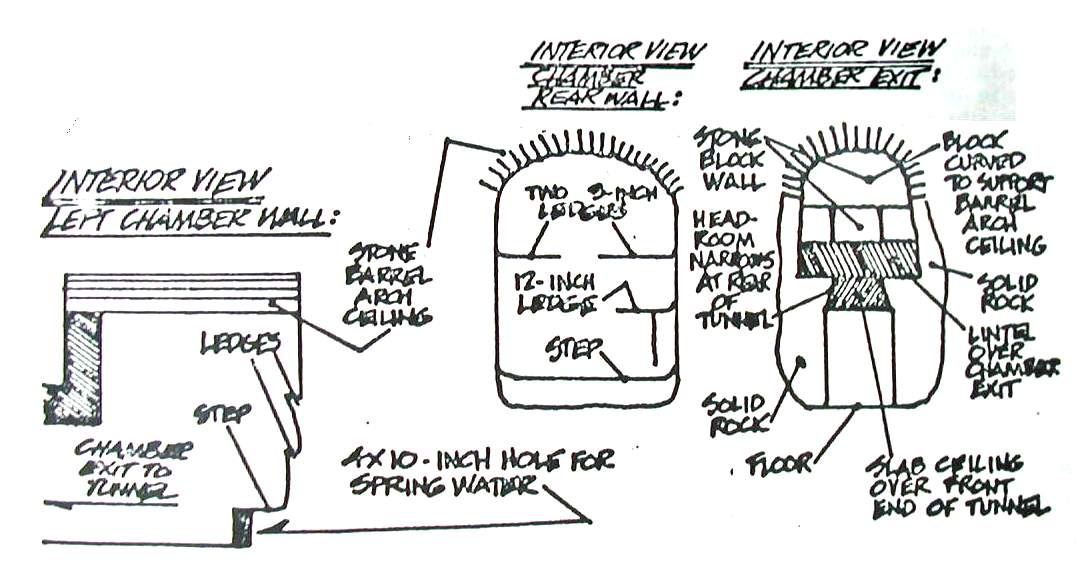 INTERIOR VIEW
LEFT CHAMBER WALL:
LEDGES
STEP
CHAMBER
EXIT TO
TUNNEL
STONE
BARREL
ARCH
CEILING
4X10-INCH HOLE FOR
SPRING WATER
INTERIOR VIEW
CHAMBER
REAR WALL:
TWO 3-INCH
LEDGERS
12-INCH
LEDGE
STEP
INTERIOR VIEW
CHAMBER EXIT:
STONE
BLOCK
WALL
HEAD-
ROOM
NARROWS
AT REAR
OF
TUNNEL
SOLID
ROCK
FLOOR
BLOCK
CURVED
TO SUPPORT
BARREL
ARCH
CEILING
SOLID
ROCK
LINTEL
OVER
CHAMBER
EXIT
SLAB CEILING
OVER FRONT
END OF TUNNEL